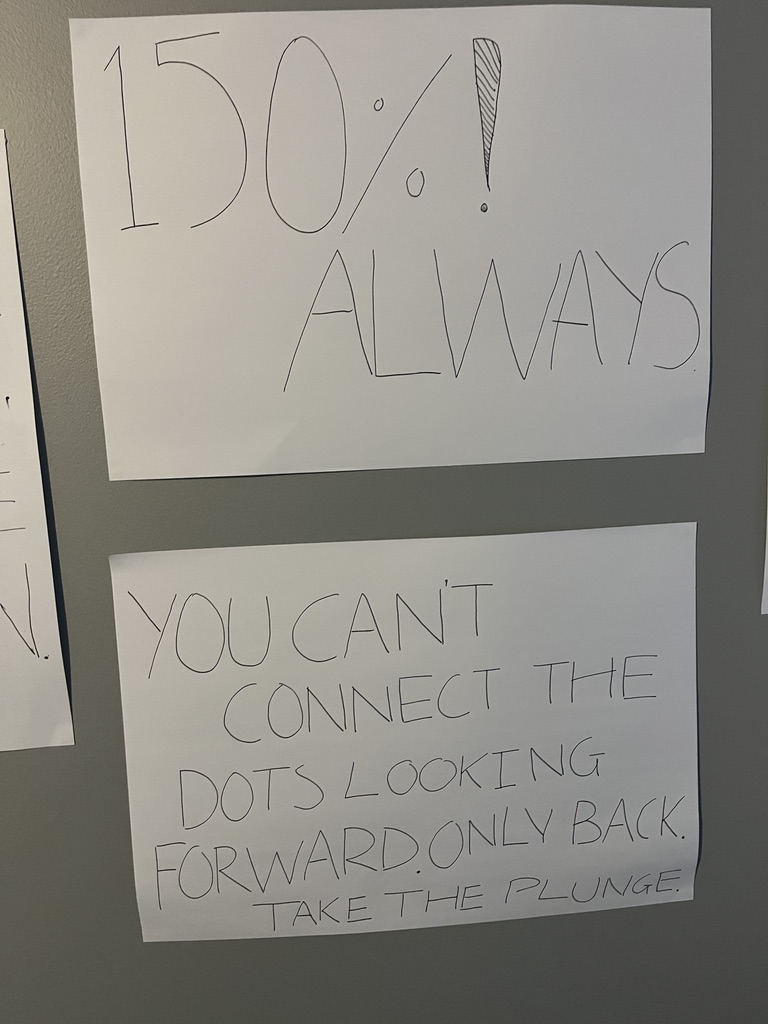 150%!
ALWAYS.
YOU CAN'T
CONNECT THE
DOTS LOOKING
FORWARD. ONLY BACK.
TAKE THE PLUNGE.